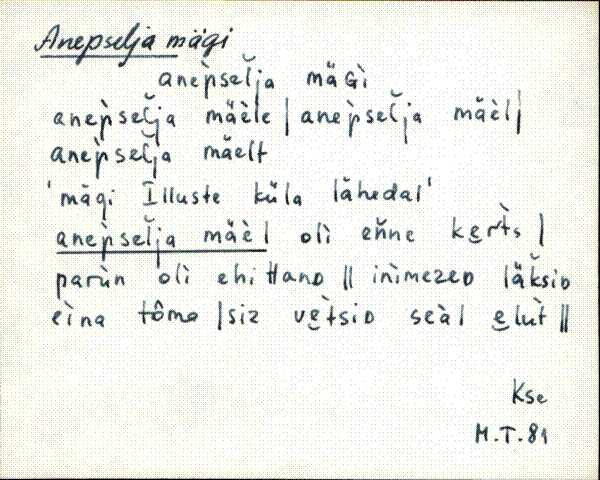 Anepselja mägi
anèpsel̆ja mäGì
anèpsel̆ja mäèle | anèpsel̆ja mäèl |
anèpsel̆ja mäelt
'mägi Illuste küla lähedal'
anèpsel̆ja mäèl oli en̆ne ke̬r̀ts |
parùn oli ehittanD || inìmezeD läk̆siD
eìna tôma | siz ve̬t̀siD seàl e̬lùt ||
Kse
M.T. 81